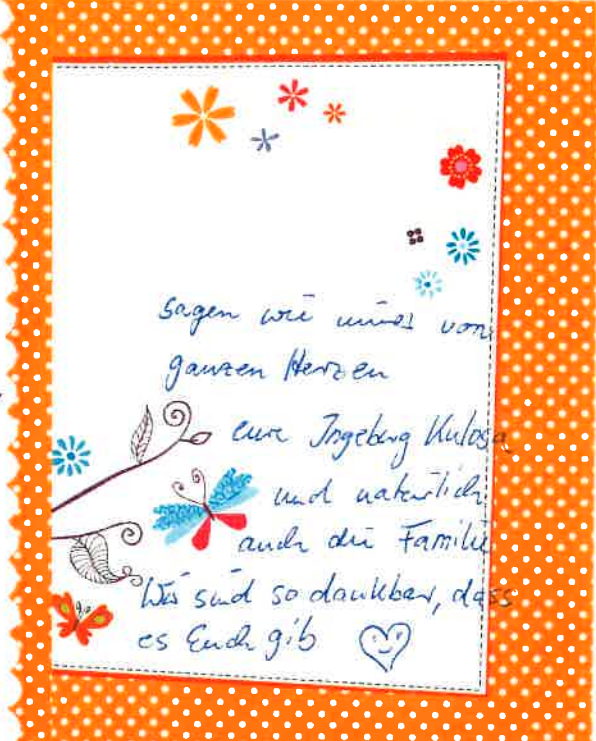 sagen wir immer von
ganzen Herzen
eure Ingeburg Kulosa
und natürlich
auch die Familie
Wir sind so dankbar, dass
es Euch gib